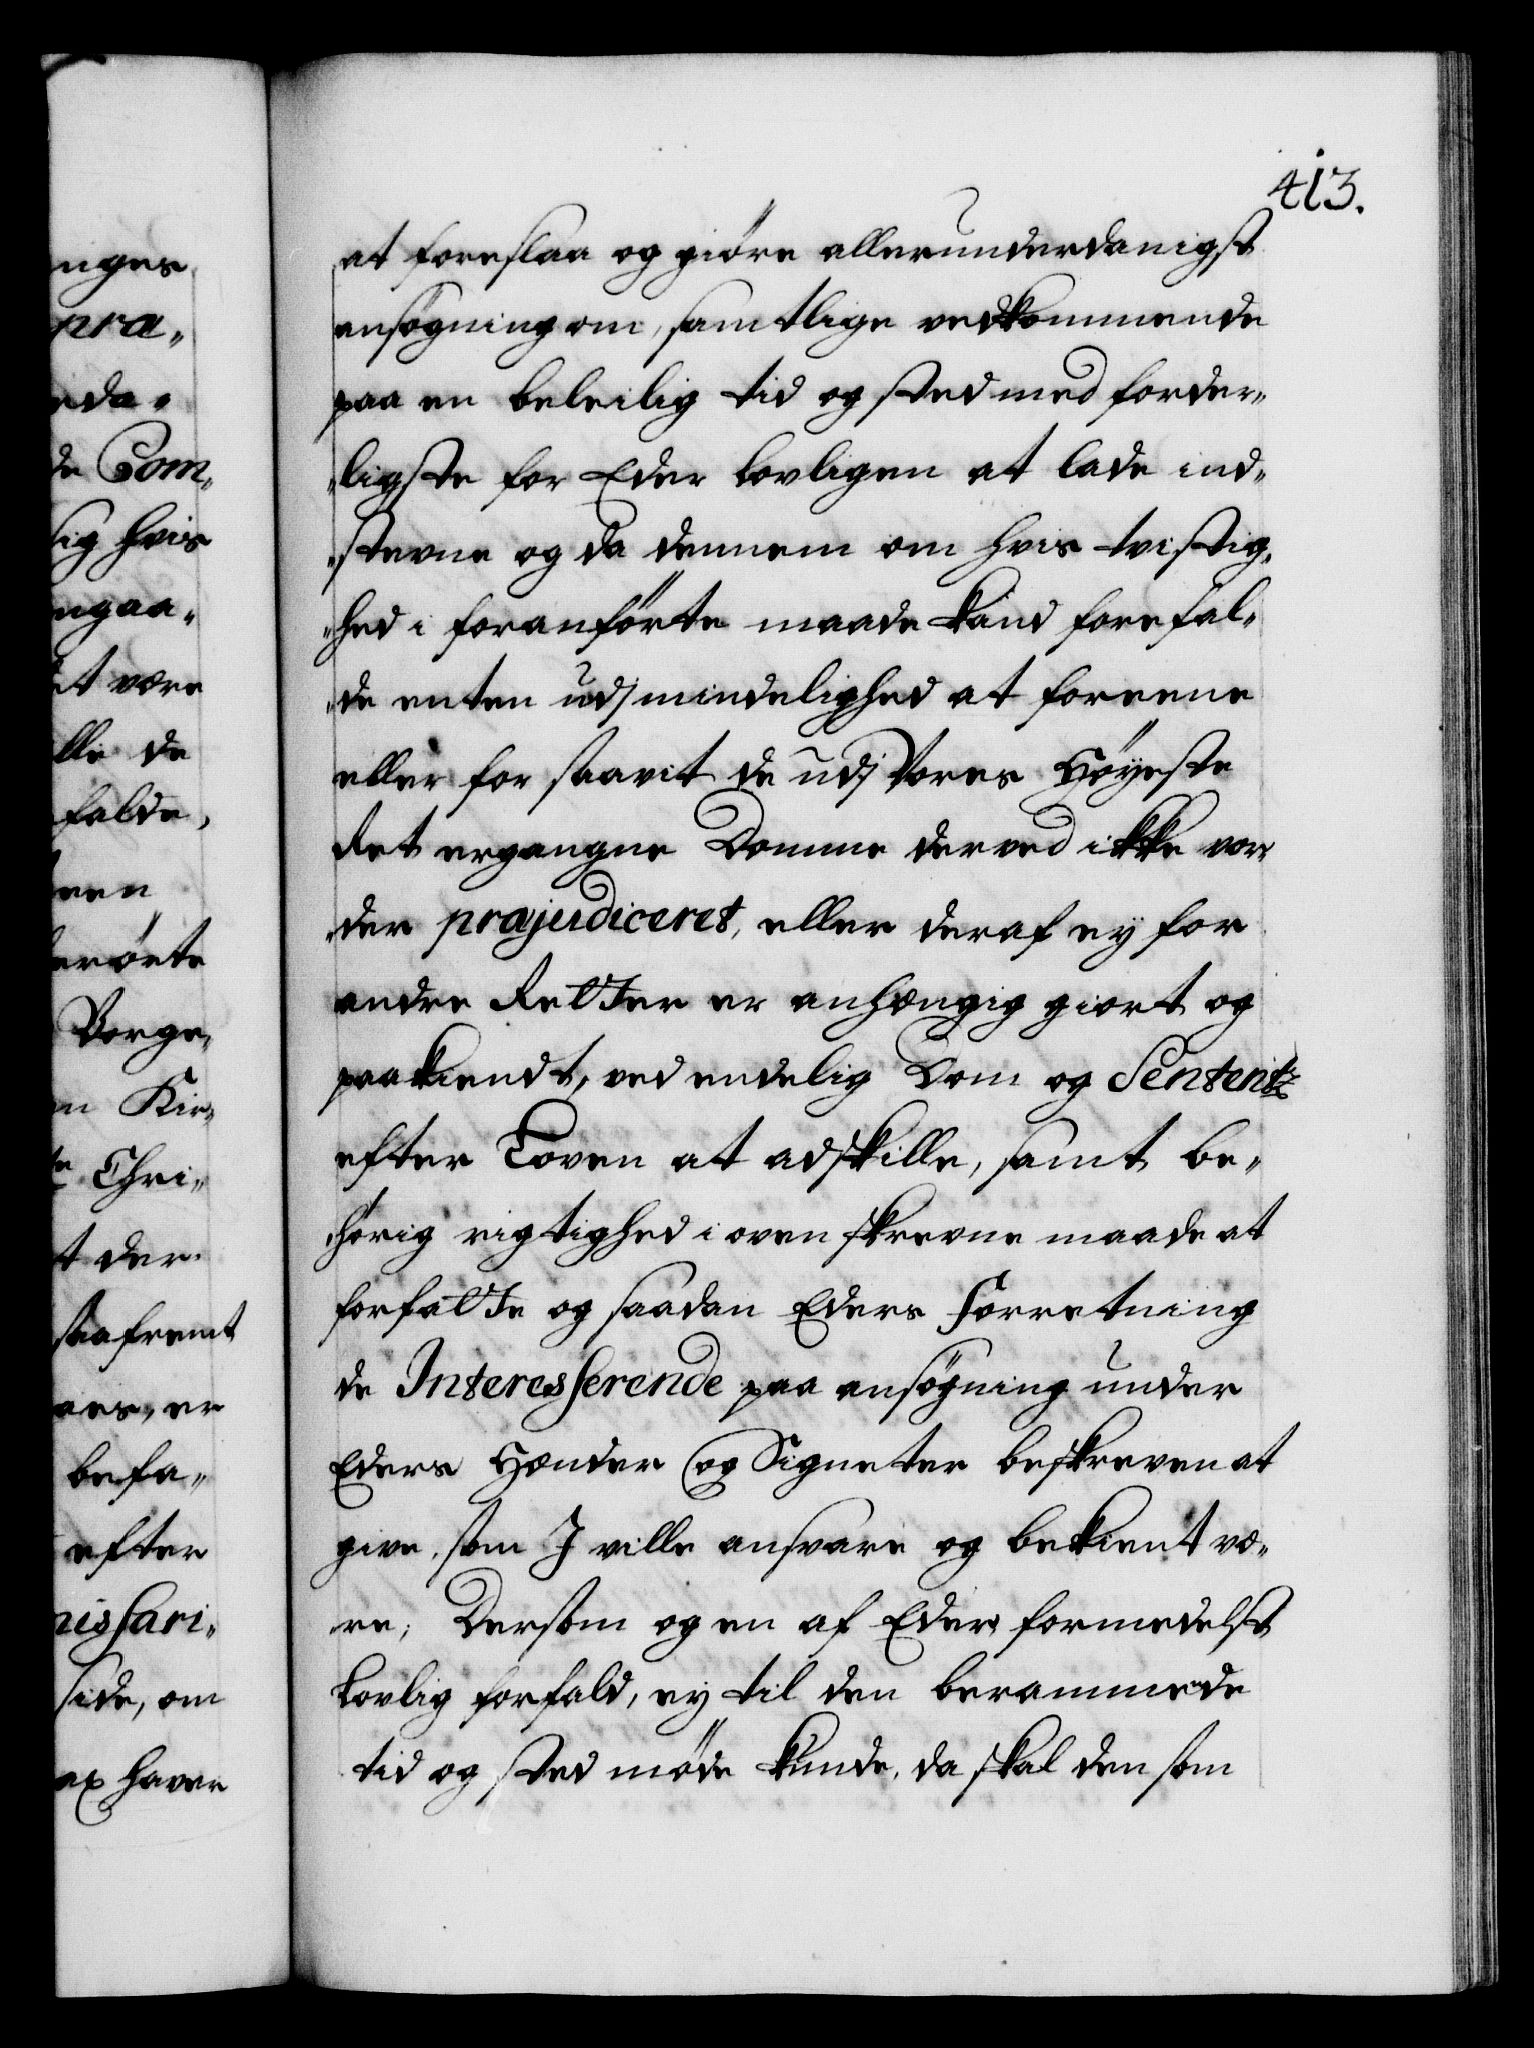 413.
at foreslaa og giöre allerunderdanigst
ansögning om, samtlige vedkommende
paa en beleilig tid og sted med forder„
„ligste for Eder lovligen at lade ind„
„stevne og da dennem om hvis tvistig„
„hed i foranförte maade kand forefal„
„de enten udj mindelighed at foreene
eller for saavit de udj Vores Höyeste
Ret ergangne Domme derved ikke vor„
„der præjudiceret, eller deraf ey for
andre Retter er anhængig giort og
paakiendt, ved endelig Dom og Sententz
efter Loven at adskille, samt be„
„hörig rigtighed i ovenskrevne maade at
forfatte og saadan Eders Forretning
de Interesserende paa ansögning under
Eders Hænder og Signeter beskreven at
give, som I ville ansvare og bekient væ„
re; Dersom ogen af Eder formedelst
lovlig forfald, ey til den berammede
tid og sted möde kunde, da skal den som
nges
præ„
de Com„
sig hvis
ngaa„
et være
lle de
falde,
een
erörte
Borge„
Kir„
Chri„
t der
saafremt
aes, er
befa„
efter
missari„
side, om
haver